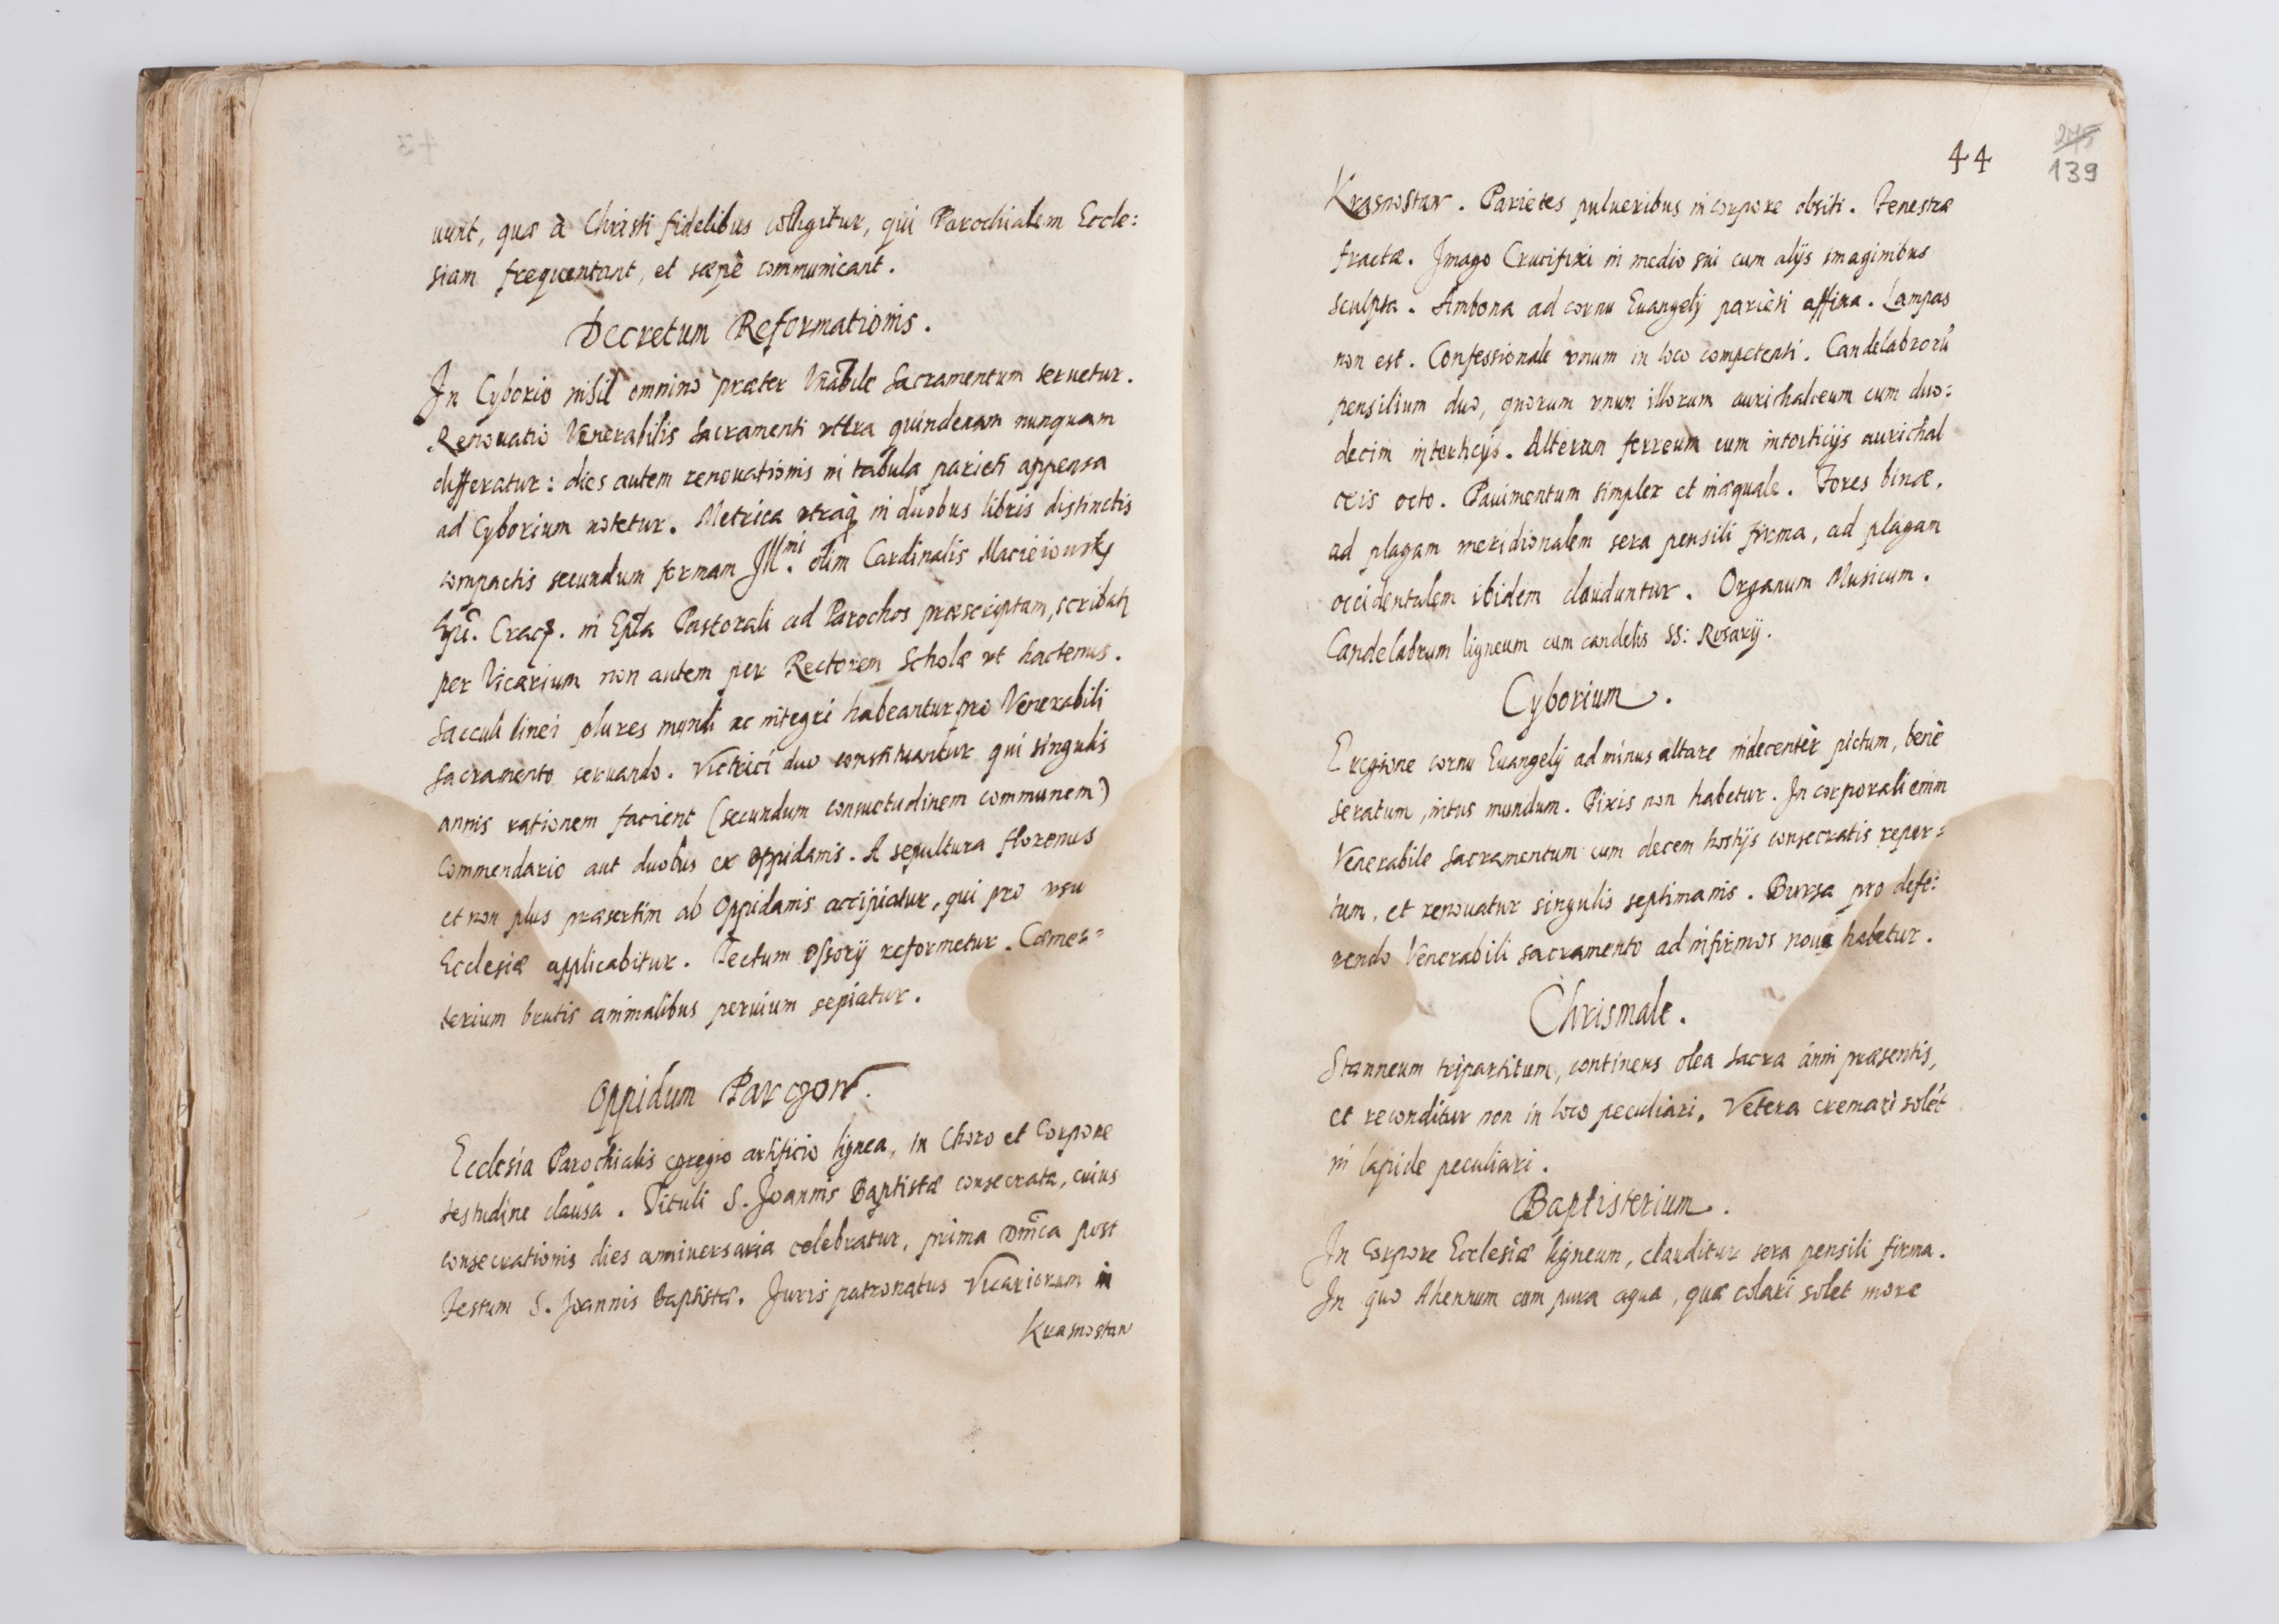 uunt, quæ à Christi fidelibus colligitur, qui Parochialem Eccle:
siam frequentant, et sæpè communicant.
Decretum Reformationis.
In Cyborio nihil omnino præter Vnãbile Sacramentum seruetur.
Renouatio Venerabilis Sacramenti vltra quindenam nunquam
differatur: dies autem renouationis in tabula parieti appensa
ad Cyborium notetur. Metrica vtraq; in duobus libris distinctis
compactis secundum formam Jll.mi olim Cardinalis Macieiousky
Crac. in Epla Pastorali ad Parochos præscriptam, scribat
per Vicarium non autem per Rectorem Scholæ vt hactenus.
Sacculi linei plures mundi ac integri habeantur pro Venerabili
Sacramento seruando. Vitrici duo constituantur qui singulis
annis rationem facient (secundum consuetudinem communem)
Commendario aut duobus ex oppidanis. A sepultura florenus
et non plus præsertim ab Oppidanis accipiatur, qui pro vsu
Ecclesiæ applicabitur. Tectum Ossorij reformetur. Cæme:=
terium brutis animalibus peruium sepiatur.
Oppidum Parczow.
Ecclesia Parochialis egregio artificio lignea, in Choro et Corpore
testudine clausa. Tituli S. Joannis Baptistæ consecrata, cuius
consecrationis dies anniuersaria celebratur, prima Dnica post
Festum S. Joannis Baptistæ. Juris patronatus Vicariorum in
Krasnostaw
43
44
275
139
Krasnostaw. Parietes pulueribus in corpore obsiti. Fenestræ
fractæ. Jmago Crucifixi in medio sui cum alijs imaginibus
sculpta. Ambona ad cornu Euangelij parieti affixa. Lampas
non est. Confessionale vnum in loco competenti. Candelabrorũ
pensilium duo, quorum vnum illorum aurichalceum cum duo:
decim intorticijs. Alterum ferreum cum intorticijs aurichal
ceis octo. Pauimentum simplex et inæquale. Fores binæ,
ad plagam meridionalem sera pensili firma, ad plagam
occidentalem ibidem clauduntur. Organum Musicum.
Candelabrum ligneum cum candelis SS: Rosarij.
Cyborium.
E regione cornu Euangelij ad minus altare indecenter pictum, benè
seratum, intus mundum. Pixis non habetur. In corporali enim
Venerabile Sacramentum cum decem hostijs consecratis reper=
tum, et renouatur singulis septimanis. Bursa pro defe:
rendo Venerabili sacramento ad infirmos noua habetur.
Chrismale.
Stanneum tripartitum, continens olea sacra anni præsentis,
et reconditur non in loco peculiari. Vetera cremari solet
in lapide peculiari.
Baptisterium.
In Corpore Ecclesiæ ligneum, clauditur sera pensili firma.
In quo Ahennum cum pura aqua, quæ colari solet more